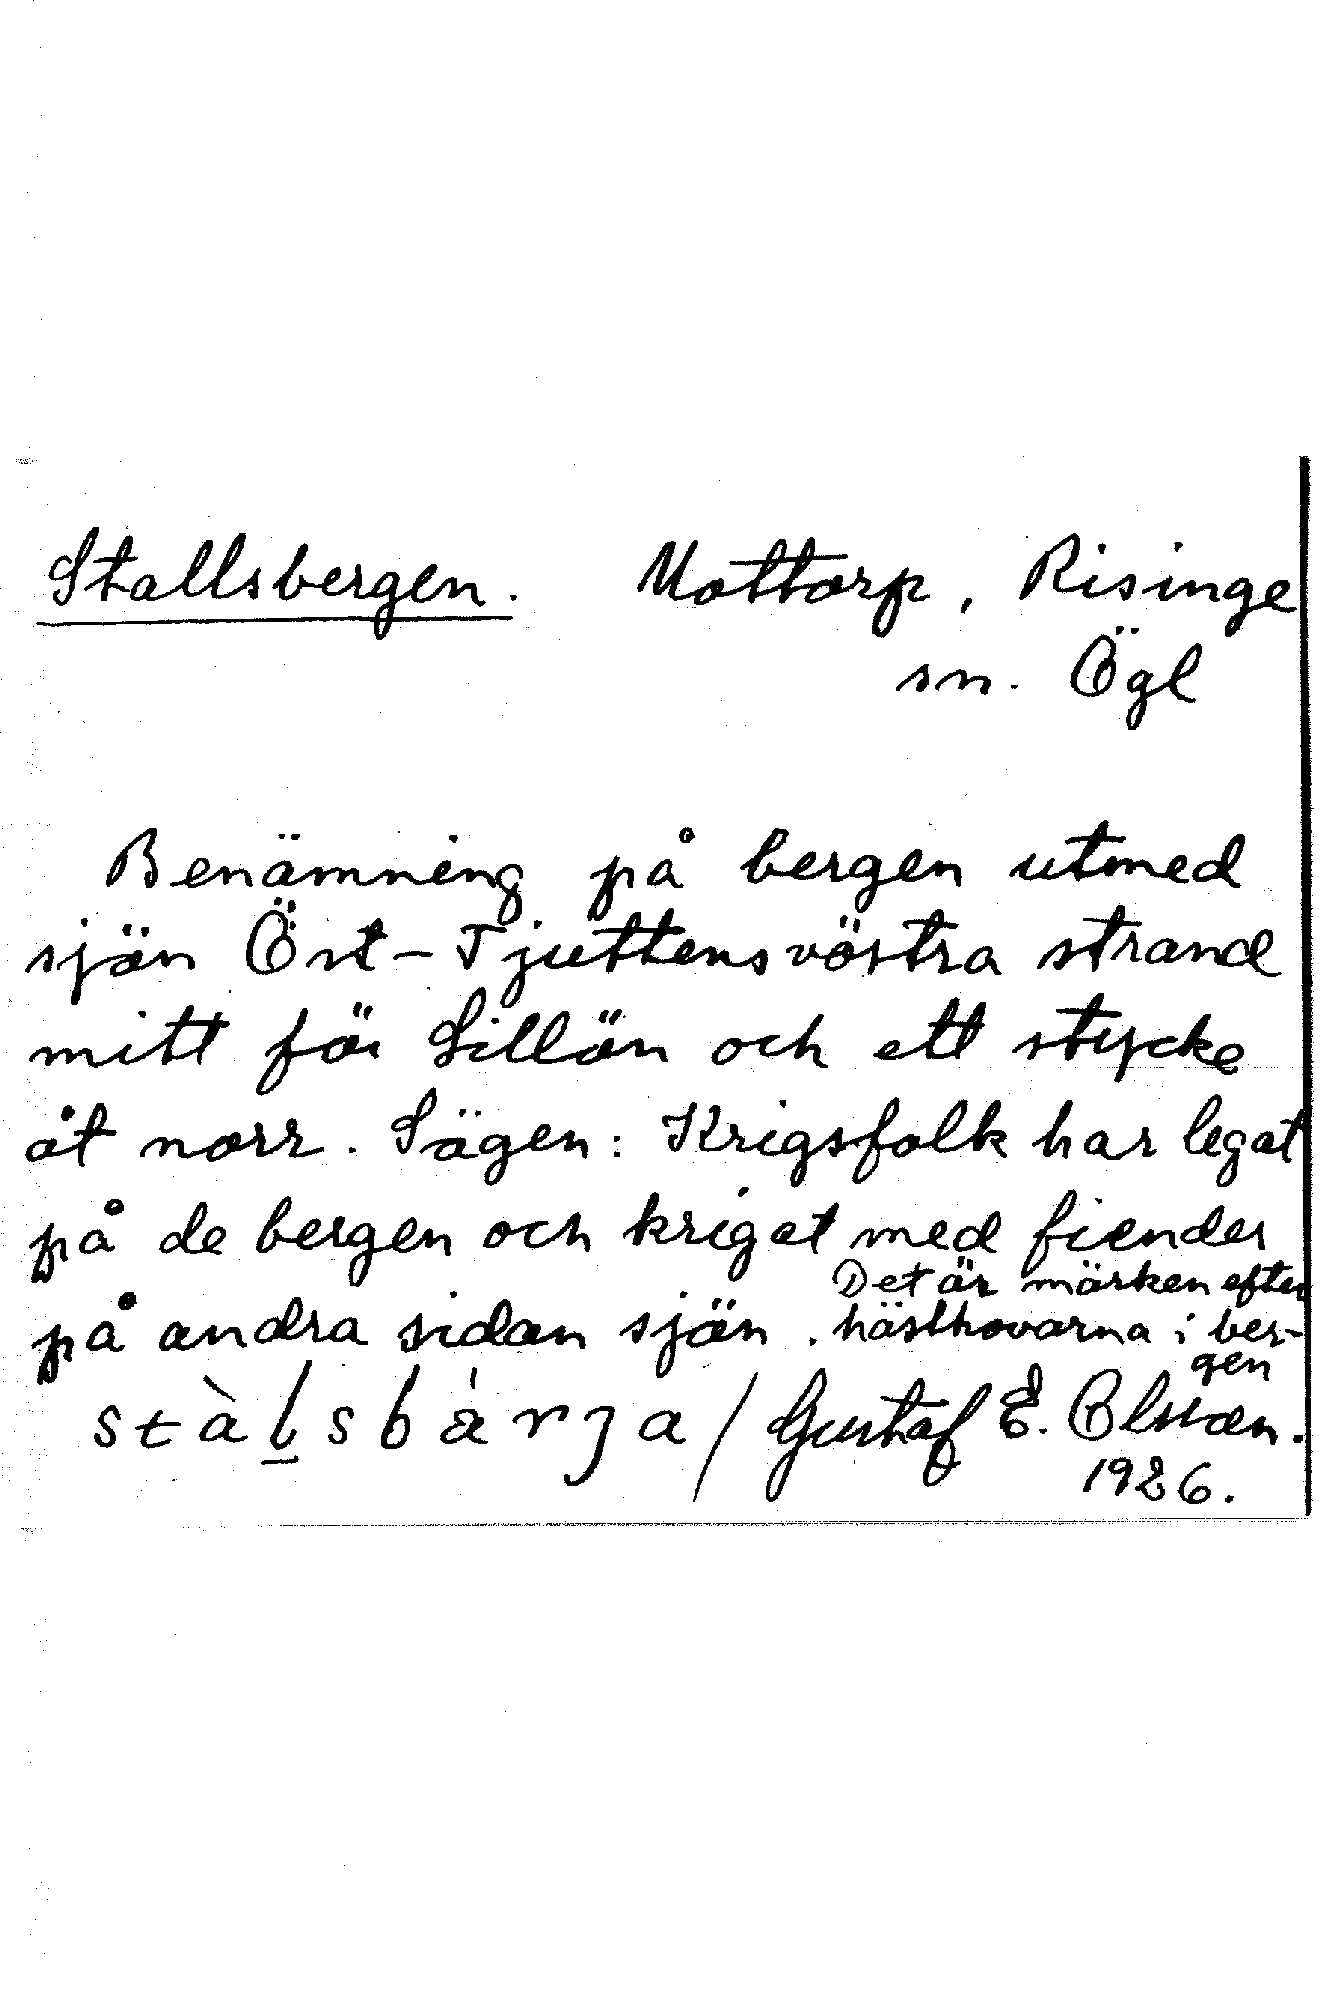 Stallsbergen. Mottorp, Risinge
sn. Ögl
Benämning på bergen utmed
sjön Öst-Tjuttens västra strand
mitt för Sillön och ett stycke
åt norr. Sägen: Krigsfolk har legat
på de bergen och krigat med fiender
på andra sidan sjön. Det är märken efter
hästhovarna i ber-
gen
stàlsbàrja / Gustaf E. Olsson.
1926.